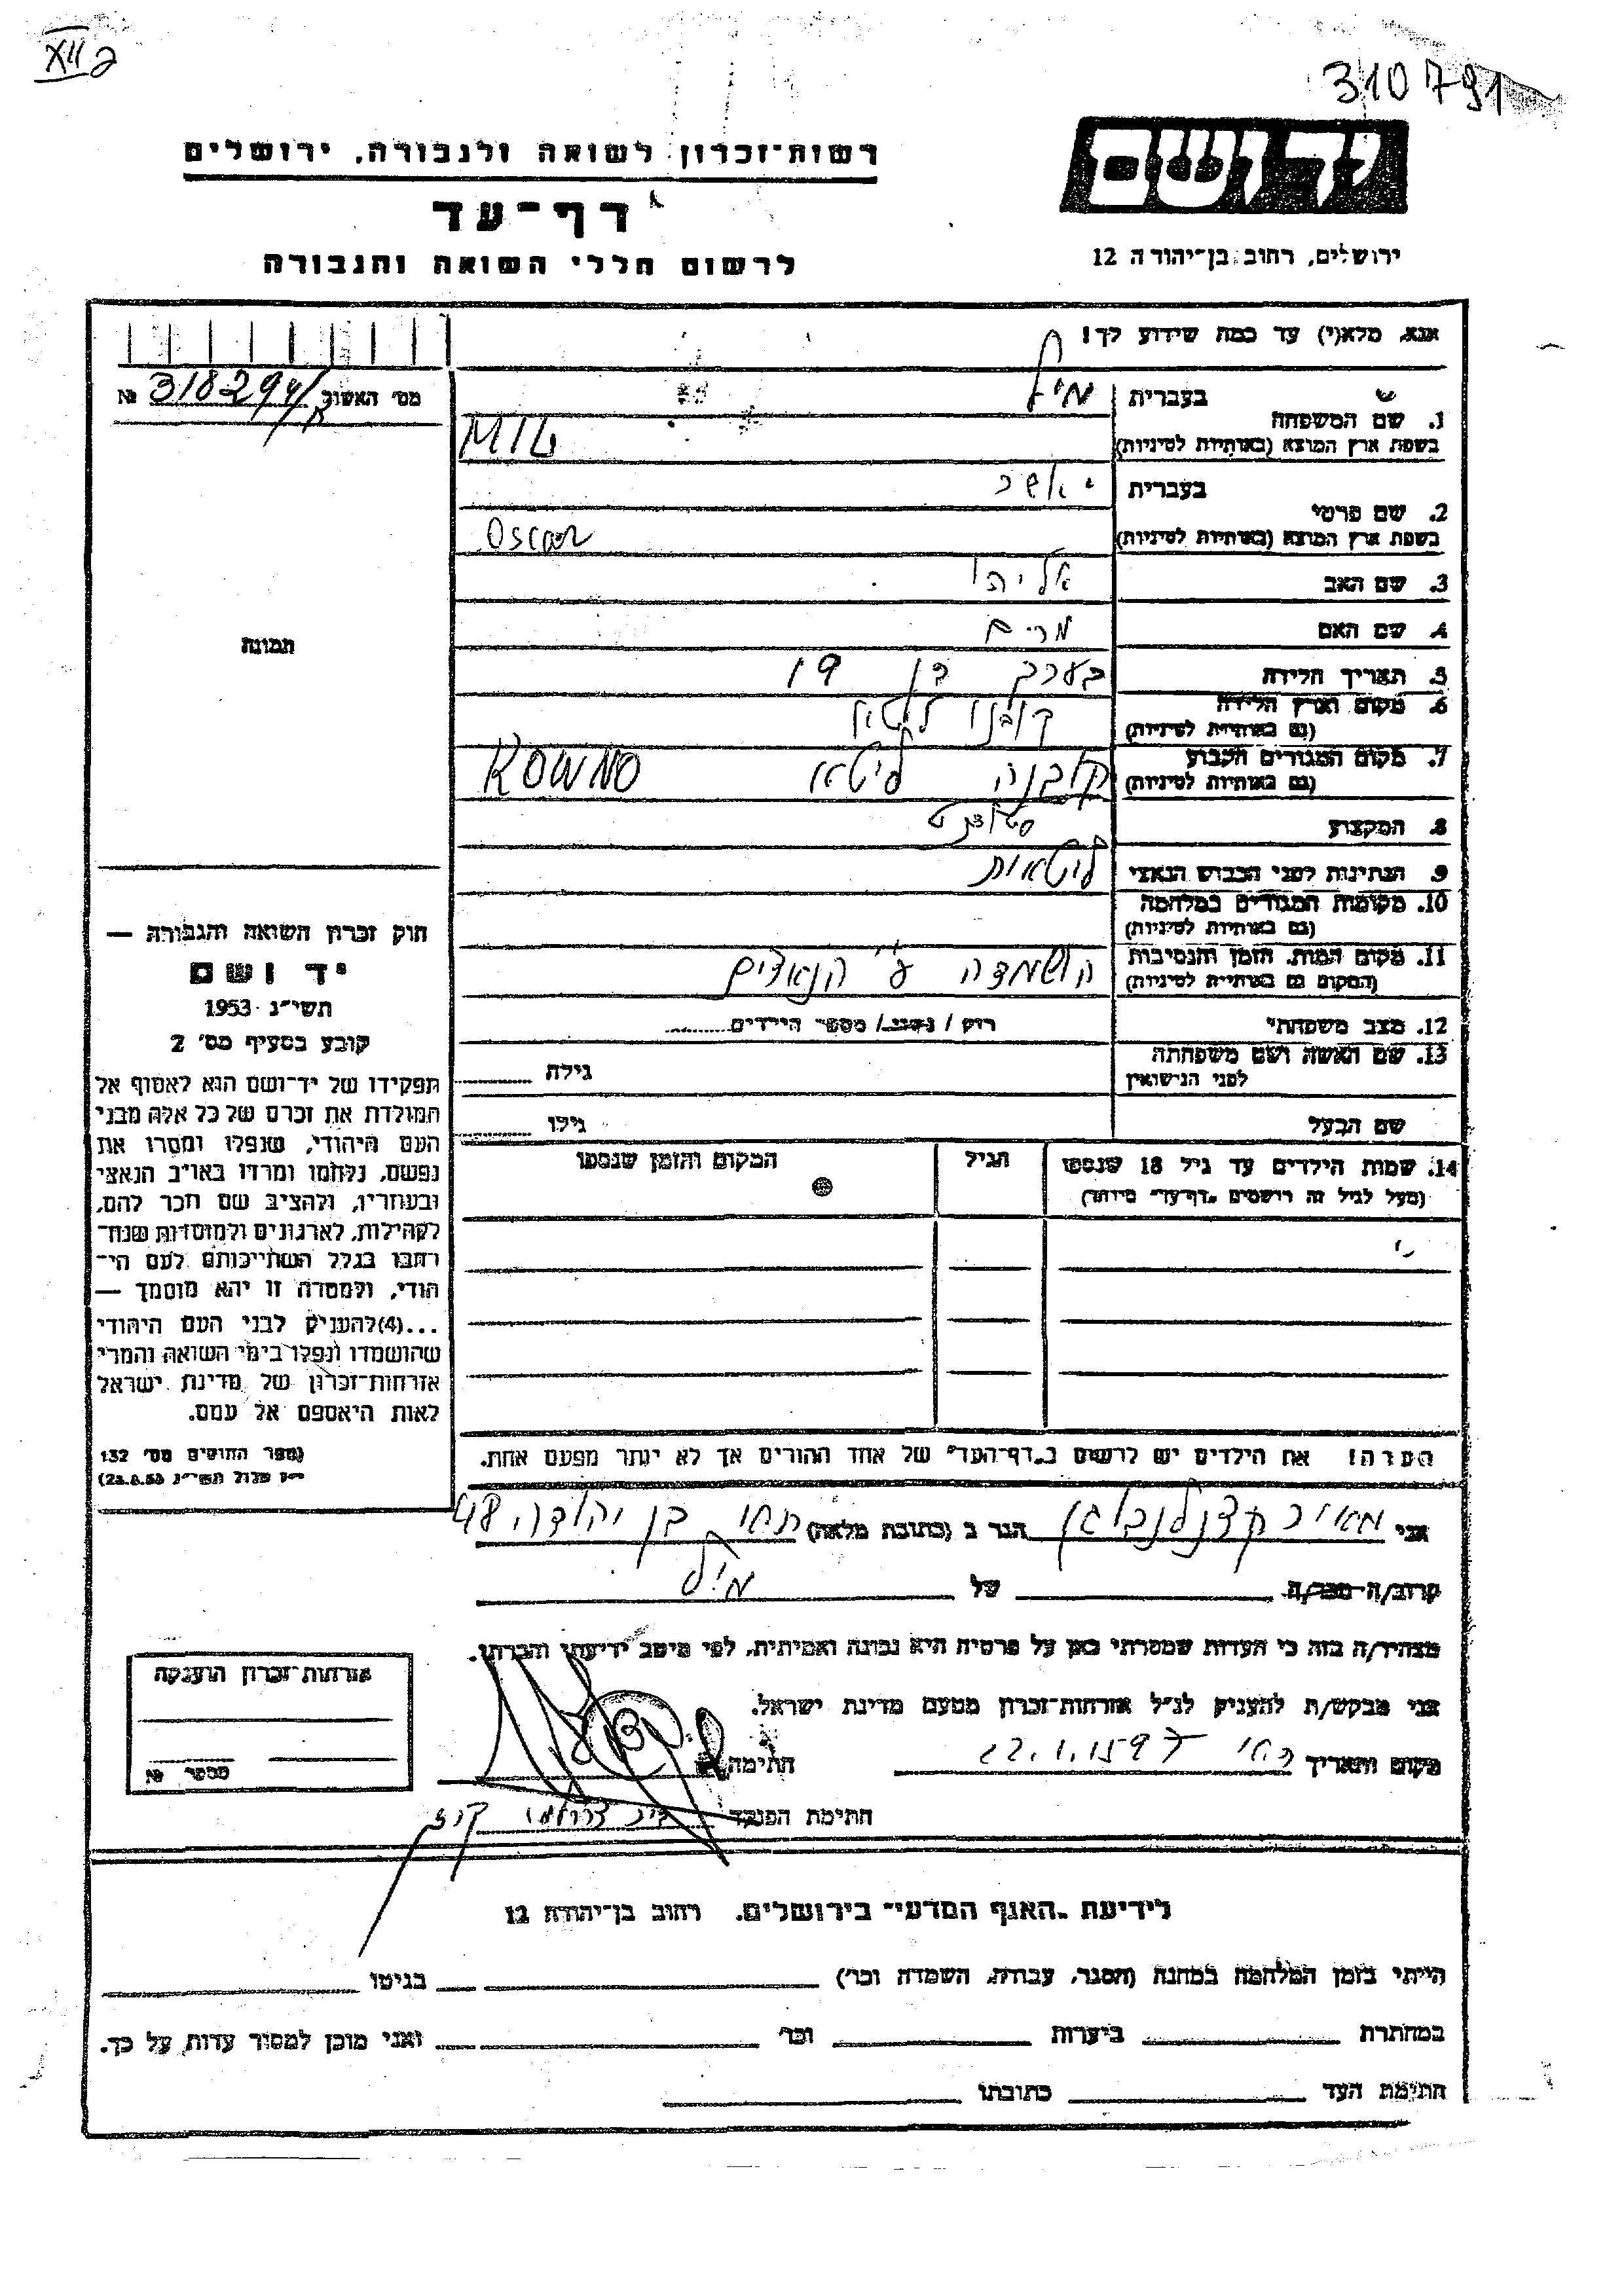 XII 2
310791
יד ושם
רשות־זכרון לשואה ולגבורה, ירושלים
דף־עד
לרשום חללי השואה והגבורה
ירושלים, רחוב בן־יהודה 12
אנא, מלא(י) עד כמה שידוע לך!
מס׳ האשור 318294/ №
1. שם המשפחה
בעברית מיל
בשפת ארץ המוצא (באותיות לטיניות) MIL
2. שם פרטי
בעברית אשר
בשפת ארץ המוצא (באותיות לטיניות) Oscar
3. שם האב אליהו
4. שם האם מרים
5. תאריך הלידה בערך בן 19
6. מקום וארץ הלידה
(גם באותיות לטיניות) קובנו ליטא
7. מקום המגורים הקבוע
(גם באותיות לטיניות) קובנה ליטא KOWNO
8. המקצוע סטודנט
9. הנתינות לפני הכבוש הנאצי ליטאית
10. מקומות המגורים במלחמה
(גם באותיות לטיניות)
11. מקום המות, הזמן והנסיבות
(המקום גם באותיות לטיניות) הושמדה ע״י הנאצים
12. מצב משפחתי רוק / נשוי / מספר הילדים
13. שם האשה ושם משפחתה
לפני הנישואין גילה
שם הבעל גילו
14. שמות הילדים עד גיל 18 שנספו
(מעל לגיל זה רושמים „דף־עד״ מיוחד)
הגיל
המקום והזמן שנספו
הערה! את הילדים יש לרשום ב„דף־העד״ של אחד ההורים אך לא יותר מפעם אחת.
תמונה
חוק זכרון השואה והגבורה —
יד ושם
תשי״ג 1953
קובע בסעיף מס׳ 2
תפקידו של יד־ושם הוא לאסוף אל
המולדת את זכרם של כל אלה מבני
העם היהודי, שנפלו ומסרו את
נפשם, נלחמו ומרדו באויב הנאצי
ובעוזריו, ולהציב שם וזכר להם,
לקהילות, לארגונים ולמוסדות שנח־
רבו בגלל השתייכותם לעם הי־
הודי, ולמטרה זו יהא מוסמך —
...(4)להעניק לבני העם היהודי
שהושמדו ונפלו בימי השואה והמרי
אזרחות־זכרון של מדינת ישראל
לאות היאספם אל עמם.
(ספר החוקים מס׳ 132
י״ז אלול תשי״ג 28.8.53)
אני מאיר קצנלנבוגן הגר ב (כתובת מלאה) תחי בן יהודה 48
קרוב/ה מכר/ה של מיל
מצהיר/ה בזה כי העדות שמסרתי כאן על פרטיה היא נכונה ואמיתית, לפי מיטב ידיעתי והכרתי.
אני מבקש/ת להעניק לנ״ל אזרחות־זכרון מטעם מדינת ישראל.
מקום ותאריך 22.1.1957 חתימה
חתימת הפוקד
אזרחות־זכרון הוענקה
מספר №
לידיעת „האגף המדעי״ בירושלים, רחוב בן־יהודה 12
הייתי בזמן המלחמה במחנה (הסגר, עבודה, השמדה וכו׳) בגיטו
במחתרת ביערות וכו׳ ואני מוכן למסור עדות על כך.
חתימת העד כתובתו